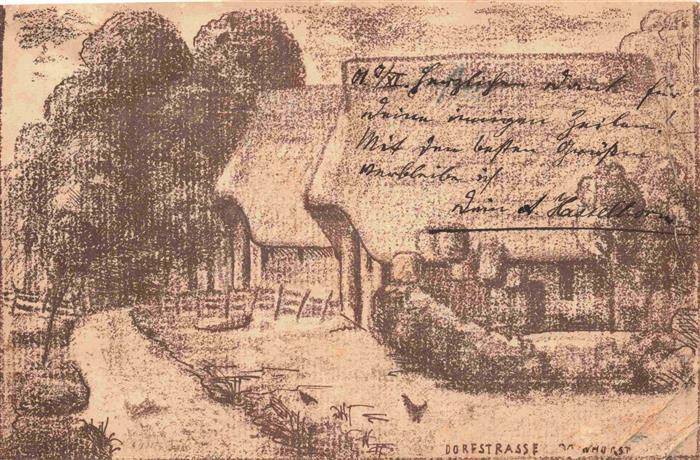 Herzlichen Dank für
Deine innigen Zeilen!
Mit den besten Grüßen
verbleibe ich
Dein A. Hasselhorn
DORFSTRASSE